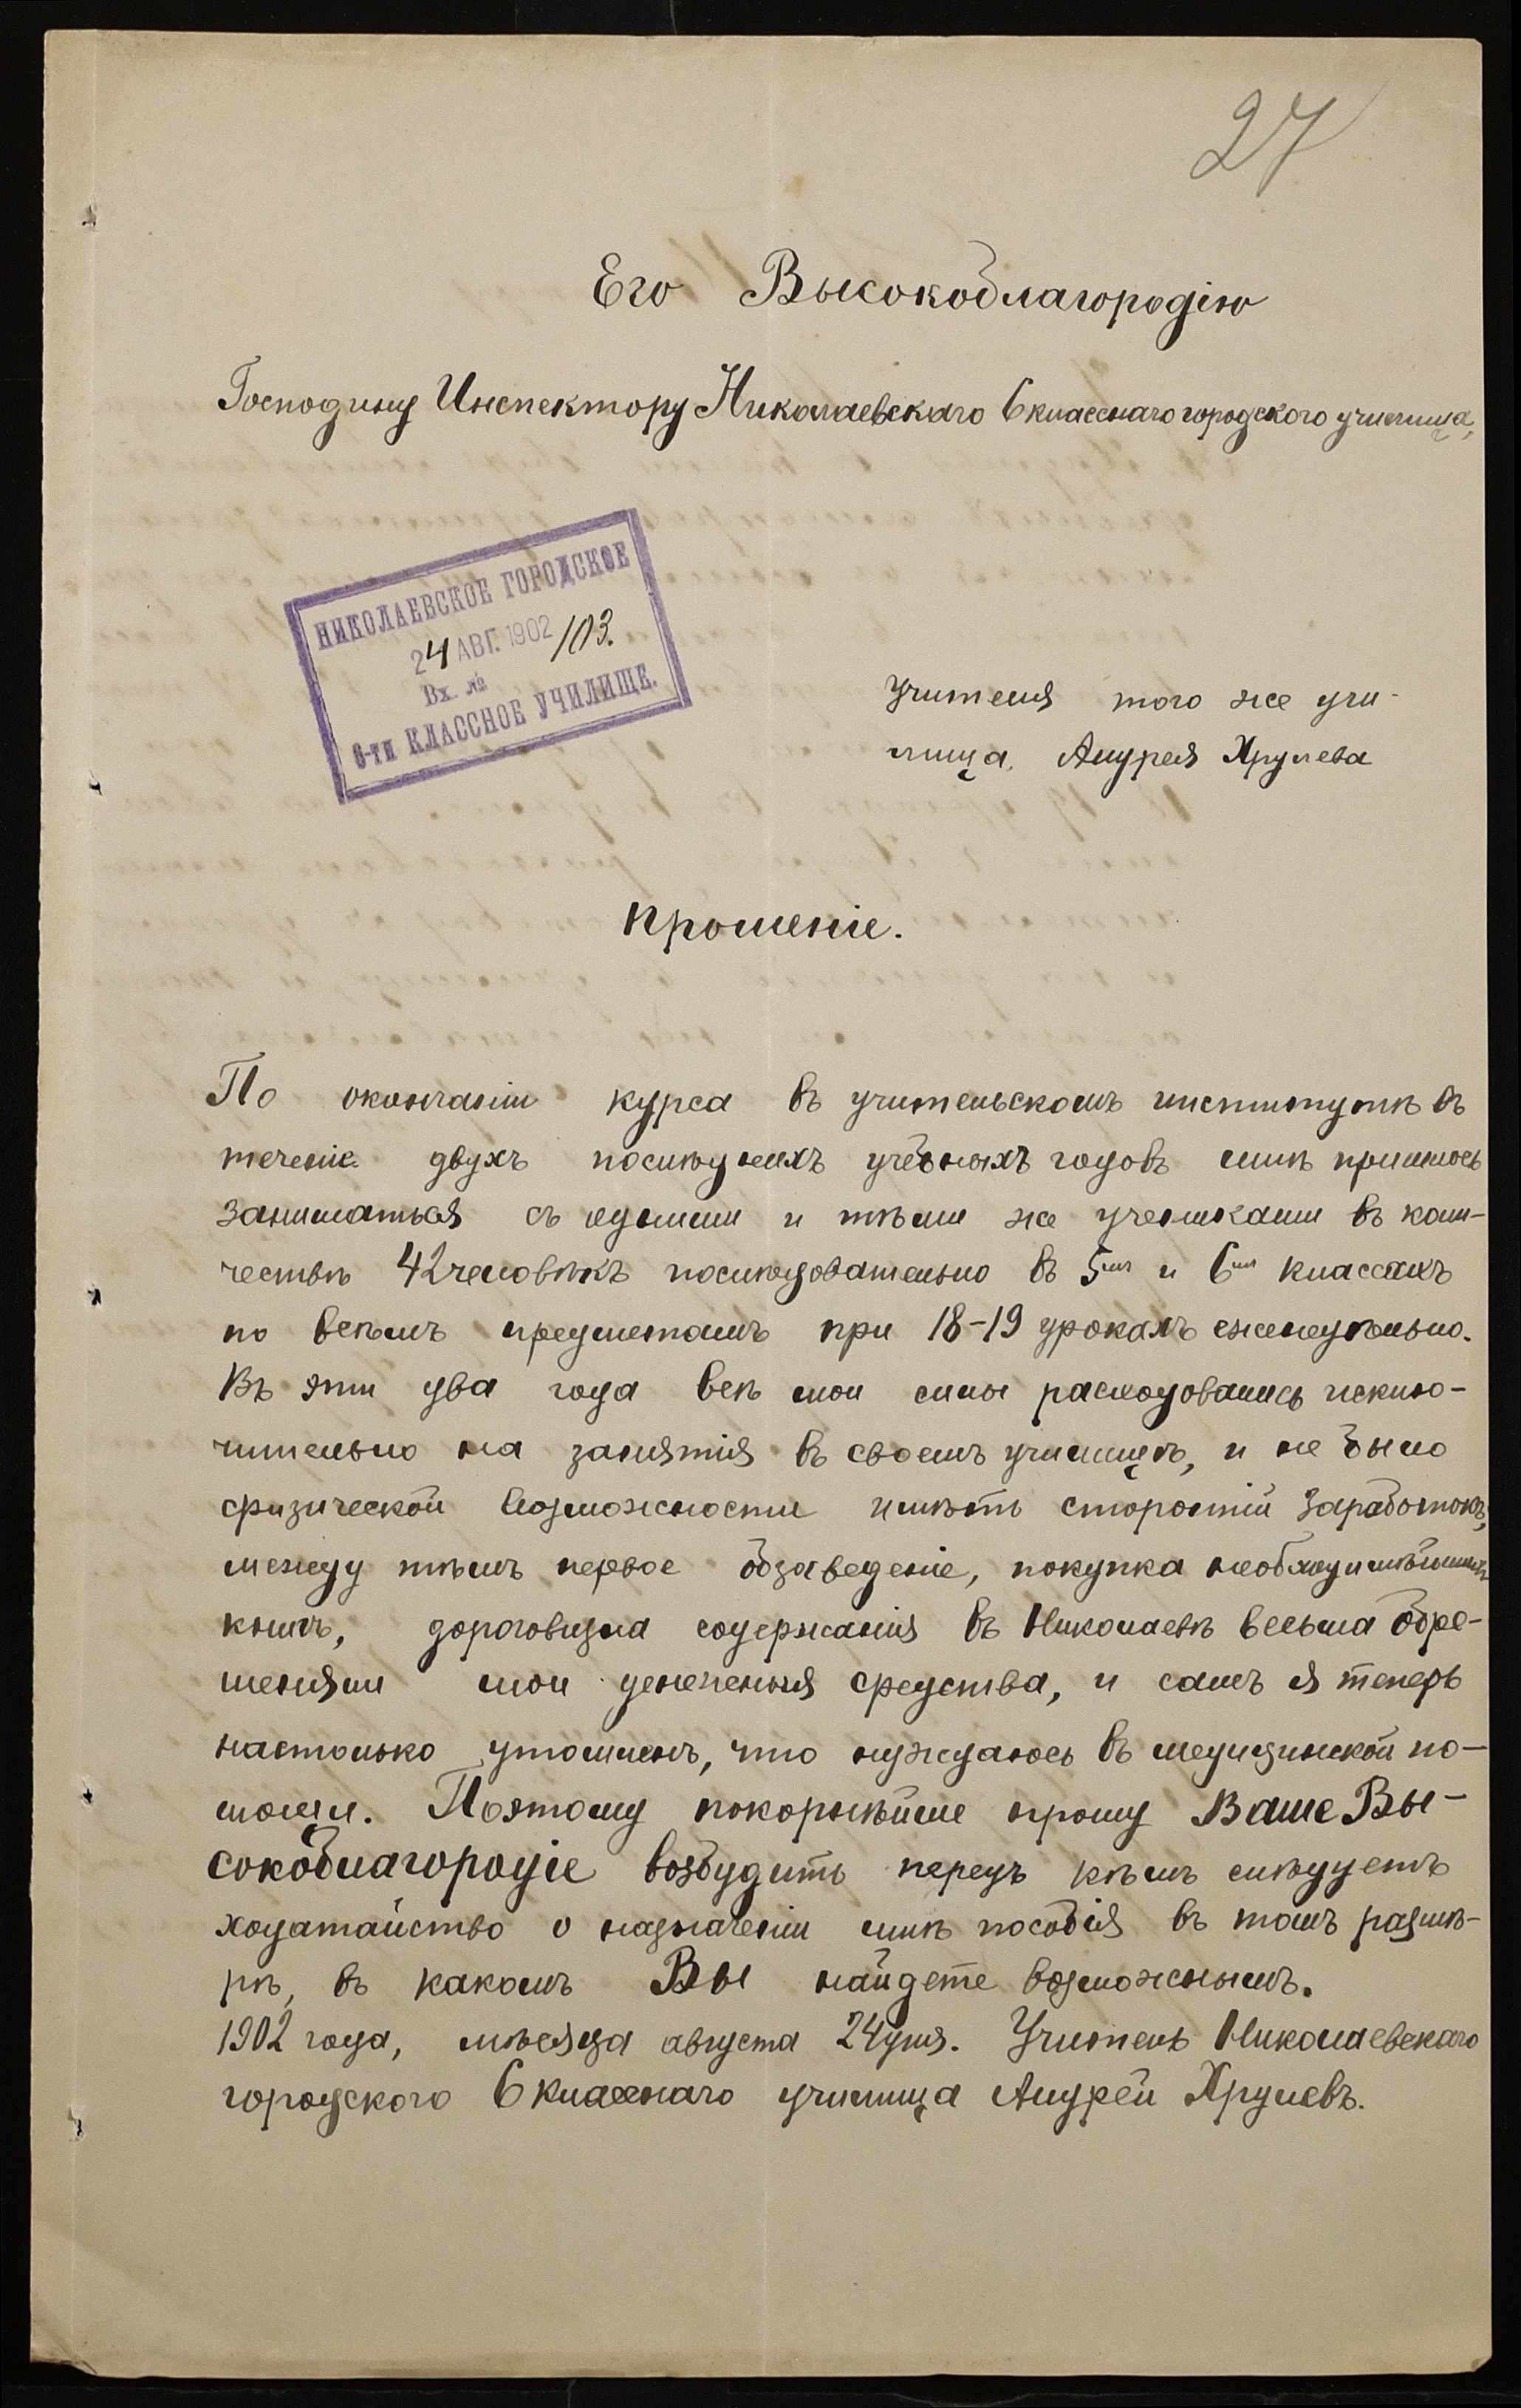 27
Его Высокоблагородію
Господину Инспектору Николаевскаго 6 класснаго городского училища,
НИКОЛАЕВСКОЕ ГОРОДСКОЕ
24 АВГ. 1902 /103.
Вх. №
6-ти КЛАССНОЕ УЧИЛИЩЕ.
Учителя того же учи-
лища, Андрея Хрулева
Прошеніе.
По окончаніи курса въ учительскомъ институтѣ въ
теченіе двухъ послѣднихъ учебныхъ годовъ мнѣ пришлось
заниматься съ одними и тѣми же учениками въ коли-
чествѣ 42 человѣкъ послѣдовательно въ 5мъ и 6мъ классахъ
по всѣмъ предметамъ при 18-19 урокахъ еженедѣльно.
Въ эти два года всѣ мои силы расходовались исклю-
чительно на занятія въ своемъ училищѣ, и не было
физической возможности имѣть сторонній заработокъ,
между тѣмъ первое обзаведеніе, покупка необходимѣйшихъ
книгъ, дороговизна содержанія въ Николаевѣ весьма обре-
меняли мои денежныя средства, и самъ я теперь
настолько утомленъ, что нуждаюсь въ медицинской по-
мощи. Поэтому покорнѣйше прошу Ваше Вы-
сокоблагородіе возбудить передъ кѣмъ слѣдуетъ
ходатайство о назначеніи мнѣ пособія въ томъ размѣ-
рѣ, въ какомъ Вы найдете возможнымъ.
1902 года, мѣсяца августа 24 дня. Учитель Николаевскаго
городского 6 класснаго училища Андрей Хрулевъ.